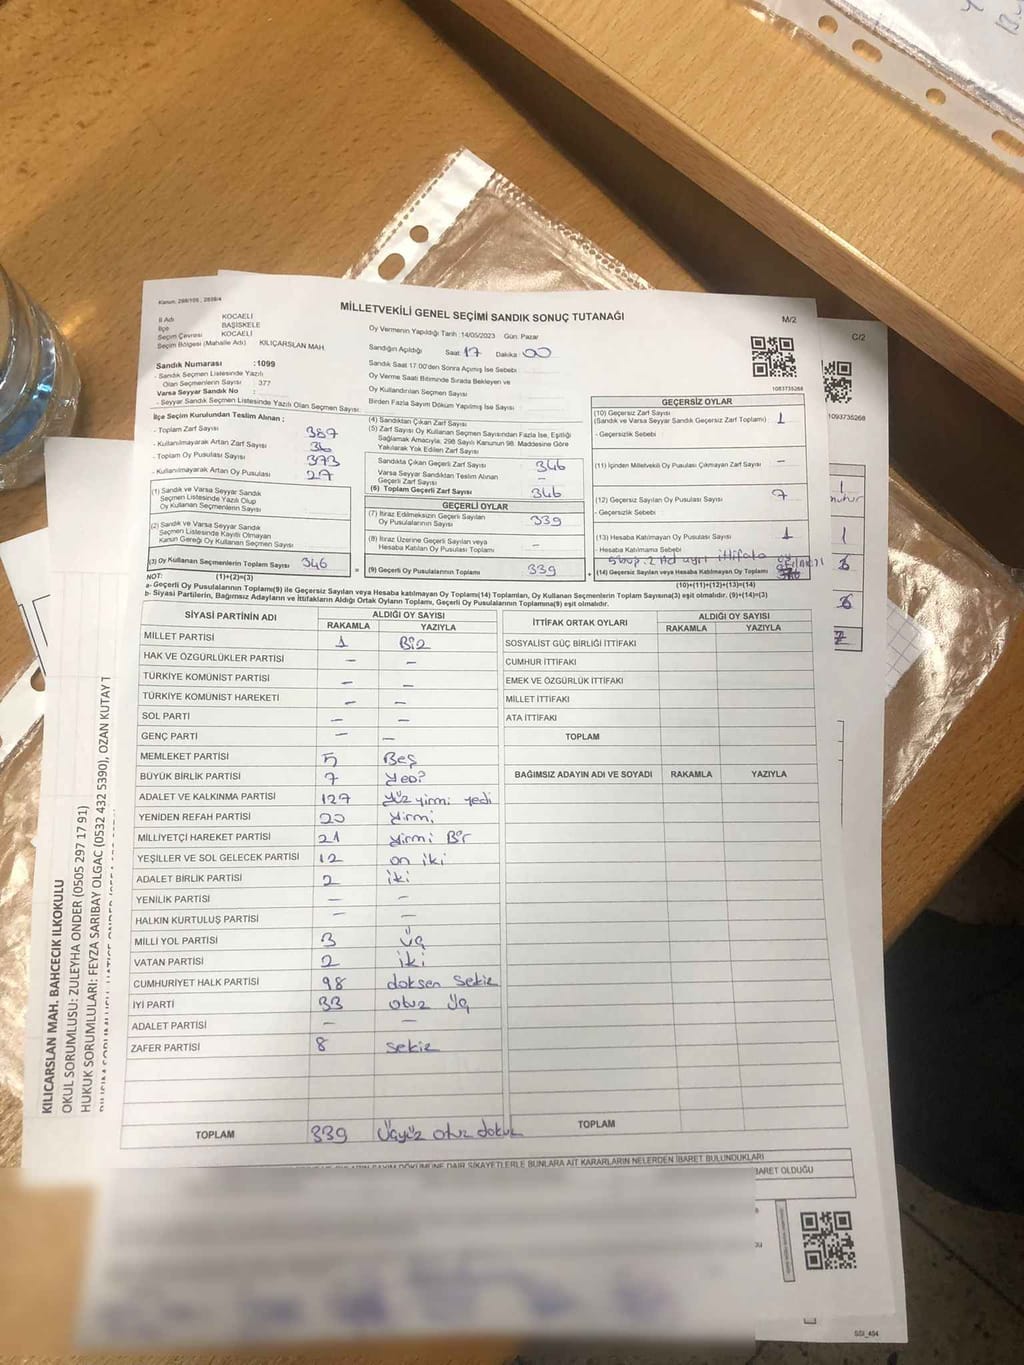 Kanun, 298/105 , 2839/4
MİLLETVEKİLİ GENEL SEÇİMİ SANDIK SONUÇ TUTANAĞI
M/2
C/2
İl Adı KOCAELİ
İlçe BAŞİSKELE
Seçim Çevresi KOCAELİ
Seçim Bölgesi (Mahalle Adı) KILIÇARSLAN MAH.
Sandık Numarası :1099
- Sandık Seçmen Listesinde Yazılı
Olan Seçmenlerin Sayısı : 377
Varsa Seyyar Sandık No :
- Seyyar Sandık Seçmen Listesinde Yazılı Olan Seçmen Sayısı:
Oy Vermenin Yapıldığı Tarih :14/05/2023 Gün: Pazar
Sandığın Açıldığı Saat: 17 Dakika: 00
Sandık Saat 17.00'den Sonra Açılmış İse Sebebi
Oy Verme Saati Bitiminde Sırada Bekleyen ve
Oy Kullandırılan Seçmen Sayısı
Birden Fazla Sayım Döküm Yapılmış İse Sayısı
1093735268
1093735268
İlçe Seçim Kurulundan Teslim Alınan ;
- Toplam Zarf Sayısı 387
- Kullanılmayarak Artan Zarf Sayısı
- Toplam Oy Pusulası Sayısı 373
- Kullanılmayarak Artan Oy Pusulası 27
(1) Sandık ve Varsa Seyyar Sandık
Seçmen Listesinde Yazılı Olup
Oy Kullanan Seçmenlerin Sayısı
(2) Sandık ve Varsa Seyyar Sandık
Seçmen Listesinde Kayıtlı Olmayan
Kanun Gereği Oy Kullanan Seçmen Sayısı
(3) Oy Kullanan Seçmenlerin Toplam Sayısı 346
(1)+(2)=(3)
(4) Sandıktan Çıkan Zarf Sayısı
(5) Zarf Sayısı Oy Kullanan Seçmen Sayısından Fazla İse, Eşitliği
Sağlamak Amacıyla, 298 Sayılı Kanunun 98. Maddesine Göre
Yakılarak Yok Edilen Zarf Sayısı
Sandıkta Çıkan Geçerli Zarf Sayısı 346
Varsa Seyyar Sandıktan Teslim Alınan
Geçerli Zarf Sayısı -
(6) Toplam Geçerli Zarf Sayısı 346
GEÇERLİ OYLAR
(7) İtiraz Edilmeksizin Geçerli Sayılan
Oy Pusulalarının Sayısı 339
(8) İtiraz Üzerine Geçerli Sayılan veya
Hesaba Katılan Oy Pusulası Toplamı -
= (9) Geçerli Oy Pusulalarının Toplamı 339
GEÇERSİZ OYLAR
(10) Geçersiz Zarf Sayısı
(Sandık ve Varsa Seyyar Sandık Geçersiz Zarf Toplamı) 1
- Geçersizlik Sebebi
(11) İçinden Milletvekili Oy Pusulası Çıkmayan Zarf Sayısı -
(12) Geçersiz Sayılan Oy Pusulası Sayısı 7
- Geçersizlik Sebebi
(13) Hesaba Katılmayan Oy Pusulası Sayısı 1
- Hesaba Katılmama Sebebi
2 Ad ayrı ittifaka oy
+ (14) Geçersiz Sayılan veya Hesaba Katılmayan Oy Toplamı
(10)+(11)+(12)+(13)=(14)
NOT:
a- Geçerli Oy Pusulalarının Toplamı(9) ile Geçersiz Sayılan veya Hesaba katılmayan Oy Toplamı(14) Toplamları, Oy Kullanan Seçmenlerin Toplam Sayısına(3) eşit olmalıdır. (9)+(14)=(3)
b- Siyasi Partilerin, Bağımsız Adayların ve İttifakların Aldığı Oy Sayıları Toplamı, Geçerli Oy Pusulalarının Toplamına(9) eşit olmalıdır.
SİYASİ PARTİNİN ADI ALDIĞI OY SAYISI
RAKAMLA YAZIYLA
MİLLET PARTİSİ 1 Bir
HAK VE ÖZGÜRLÜKLER PARTİSİ - -
TÜRKİYE KOMÜNİST PARTİSİ - -
TÜRKİYE KOMÜNİST HAREKETİ - -
SOL PARTİ - -
GENÇ PARTİ - -
MEMLEKET PARTİSİ 5 Beş
BÜYÜK BİRLİK PARTİSİ 7 Yedi
ADALET VE KALKINMA PARTİSİ 127 yüz yirmi yedi
YENİDEN REFAH PARTİSİ 20 yirmi
MİLLİYETÇİ HAREKET PARTİSİ 21 yirmi Bir
YEŞİLLER VE SOL GELECEK PARTİSİ 12 on iki
ADALET BİRLİK PARTİSİ 2 iki
YENİLİK PARTİSİ - -
HALKIN KURTULUŞ PARTİSİ - -
MİLLİ YOL PARTİSİ 3 üç
VATAN PARTİSİ 2 iki
CUMHURİYET HALK PARTİSİ 98 doksan sekiz
İYİ PARTİ 33 otuz üç
ADALET PARTİSİ - -
ZAFER PARTİSİ 8 sekiz
TOPLAM 339 üçyüz otuz dokuz
İTTİFAK ORTAK OYLARI ALDIĞI OY SAYISI
RAKAMLA YAZIYLA
SOSYALİST GÜÇ BİRLİĞİ İTTİFAKI
CUMHUR İTTİFAKI
EMEK VE ÖZGÜRLÜK İTTİFAKI
MİLLET İTTİFAKI
ATA İTTİFAKI
TOPLAM
BAĞIMSIZ ADAYIN ADI VE SOYADI RAKAMLA YAZIYLA
TOPLAM
SAYIM DÖKÜMÜNE DAİR ŞİKAYETLERLE BUNLARA AİT KARARLARIN NELERDEN İBARET BULUNDUKLARI
BARET OLDUĞU
SSI_494
KILICARSLAN MAH. BAHCECIK ILKOKULU
OKUL SORUMLUSU: ZULEYHA ONDER (0505 297 17 91)
HUKUK SORUMLULARI: FEYZA SARIBAY OLGAC (0532 432 5390), OZAN KUTAY T